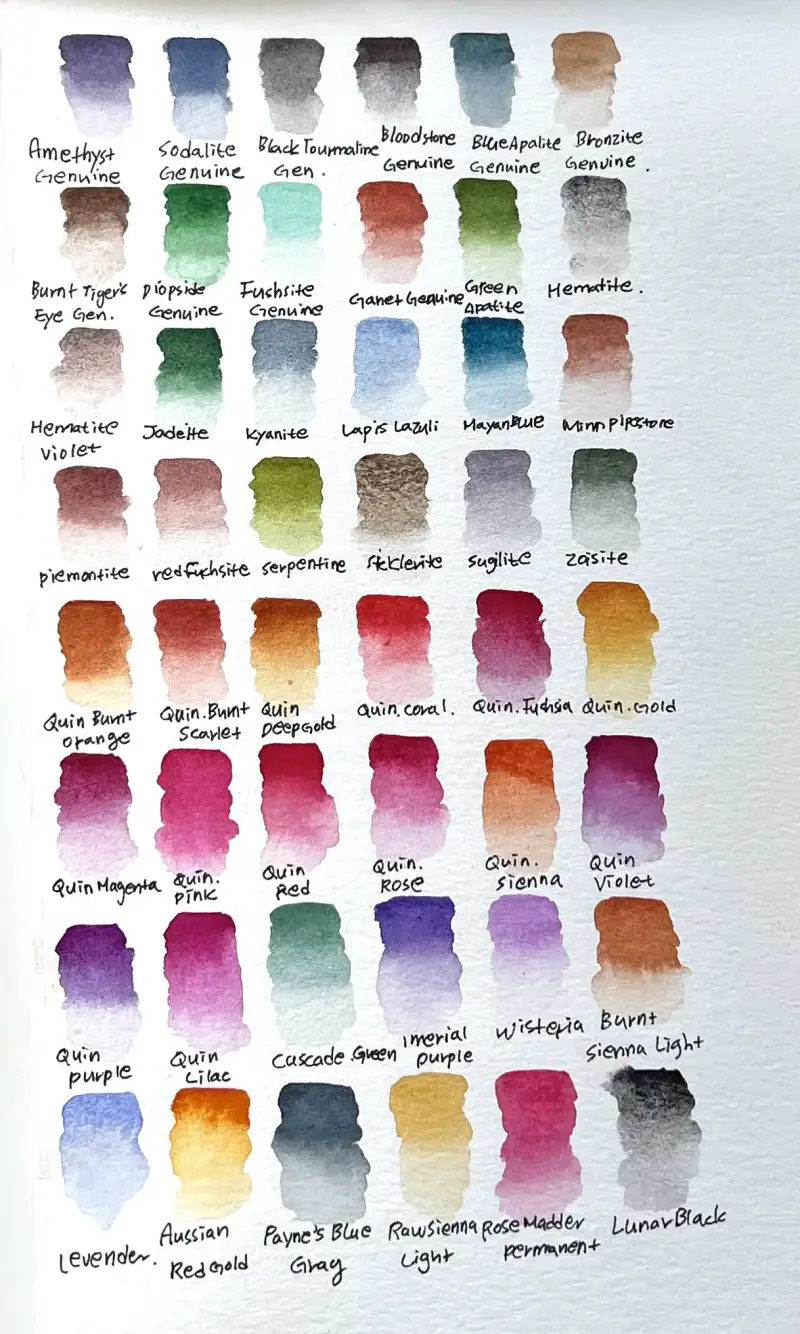 Amethyst
Genuine
Sodalite
Genuine
Black Tourmaline
Gen.
Bloodstone
Genuine
Blue Apalite
Genuine
Bronzite
Genuine.
Burnt Tiger's
Eye Gen.
Diopside
Genuine
Fuchsite
Genuine
Ganet Genuine
Green
Apatite
Hematite.
Hematite
Violet
Jadeite
Kyanite
Lapis Lazuli
Mayan Blue
Minn Pipestone
piemontite
red Fuchsite
serpentine
Sicklerite
sugilite
zoisite
Quin Burnt
orange
Quin. Burnt
Scarlet
Quin
Deep Gold
Quin. coral.
Quin. Fuchsia
Quin. Gold
Quin Magenta
Quin.
pink
Quin
Red
Quin.
Rose
Quin.
sienna
Quin
Violet
Quin
purple
Quin
Lilac
Cascade Green
Imerial
purple
Wisteria
Burnt
Sienna Light
Levender.
Aussian
Red Gold
Payne's Blue
Gray
Raw Sienna
Light
Rose Madder
permanent
Lunar Black